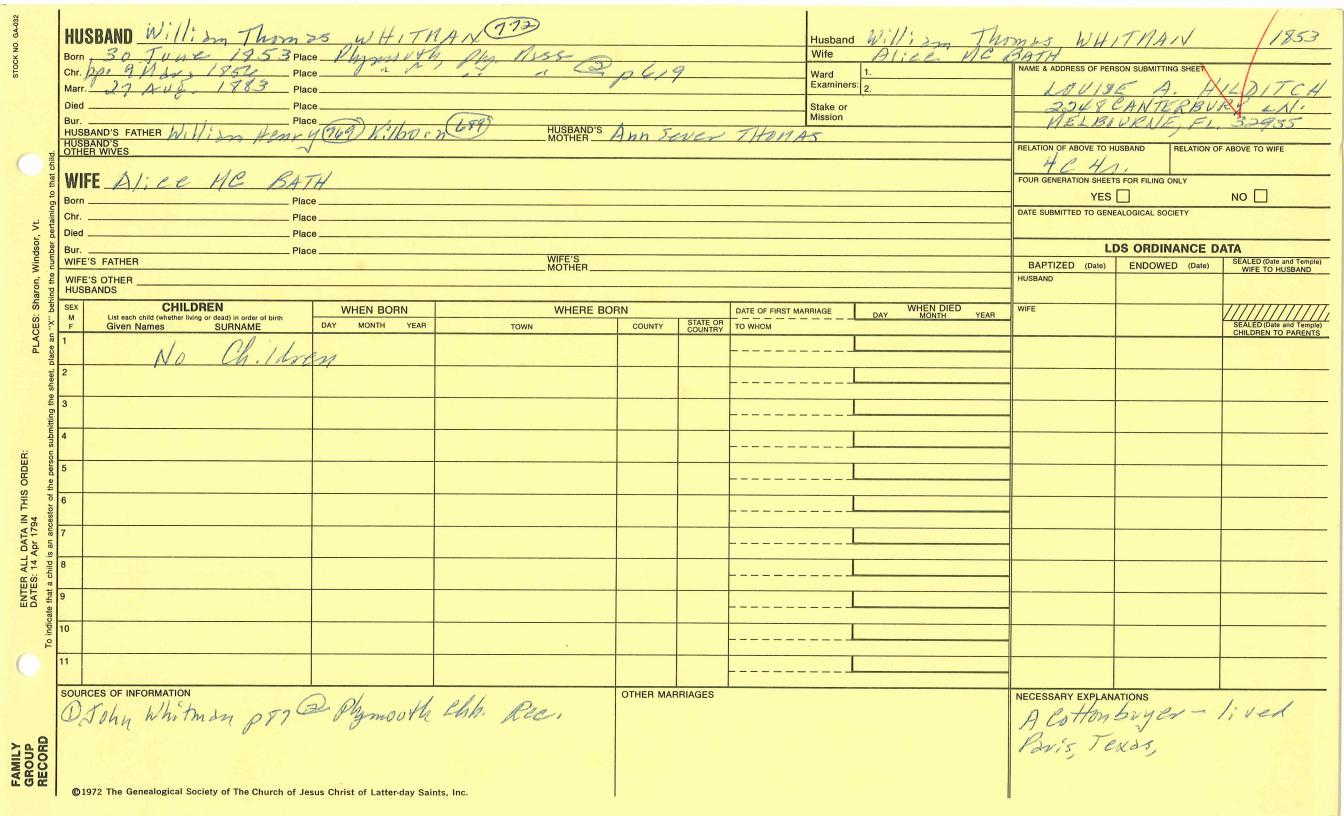 STOCK NO. GA-032
HUSBAND William Thomas WHITMAN 772
Born 30 June 1853 Place Plymouth, Ply, Mass
Chr. bp. 9 Mar, 1856 Place " " " 2 p619
Marr. 27 Aug. 1883 Place
Died Place
Bur. Place
HUSBAND'S FATHER William Henry 769 Kilborn 699 HUSBAND'S MOTHER Ann Sever THOMAS
HUSBAND'S OTHER WIVES
WIFE Alice MC BATH
Born Place
Chr. Place
Died Place
Bur. Place
WIFE'S FATHER WIFE'S MOTHER
WIFE'S OTHER HUSBANDS
Husband William Thomas WHITMAN 1853
Wife Alice MC BATH
Ward Examiners: 1.
2.
Stake or Mission
NAME & ADDRESS OF PERSON SUBMITTING SHEET
LOUISE A. HILDITCH
2248 CANTERBURY LN.
MELBOURNE, FL. 32935
RELATION OF ABOVE TO HUSBAND RELATION OF ABOVE TO WIFE
4C 4r.
FOUR GENERATION SHEETS FOR FILING ONLY
YES NO
DATE SUBMITTED TO GENEALOGICAL SOCIETY
LDS ORDINANCE DATA
BAPTIZED (Date) ENDOWED (Date) SEALED (Date and Temple) WIFE TO HUSBAND
HUSBAND
WIFE
SEALED (Date and Temple) CHILDREN TO PARENTS
SEX M F
CHILDREN
List each child (whether living or dead) in order of birth
Given Names SURNAME
WHEN BORN
DAY MONTH YEAR
WHERE BORN
TOWN COUNTY STATE OR COUNTRY
DATE OF FIRST MARRIAGE
TO WHOM
WHEN DIED
DAY MONTH YEAR
1 No Children
2
3
4
5
6
7
8
9
10
11
SOURCES OF INFORMATION
1 John Whitman p 2 Plymouth Chh. Rec.
OTHER MARRIAGES
NECESSARY EXPLANATIONS
A Cottonbuyer - lived
Paris, Texas,
©1972 The Genealogical Society of The Church of Jesus Christ of Latter-day Saints, Inc.
FAMILY GROUP RECORD
ENTER ALL DATA IN THIS ORDER:
DATES: 14 Apr 1794
PLACES: Sharon, Windsor, Vt.
To indicate that a child is an ancestor of the person submitting the sheet, place an "X" behind the number pertaining to that child.